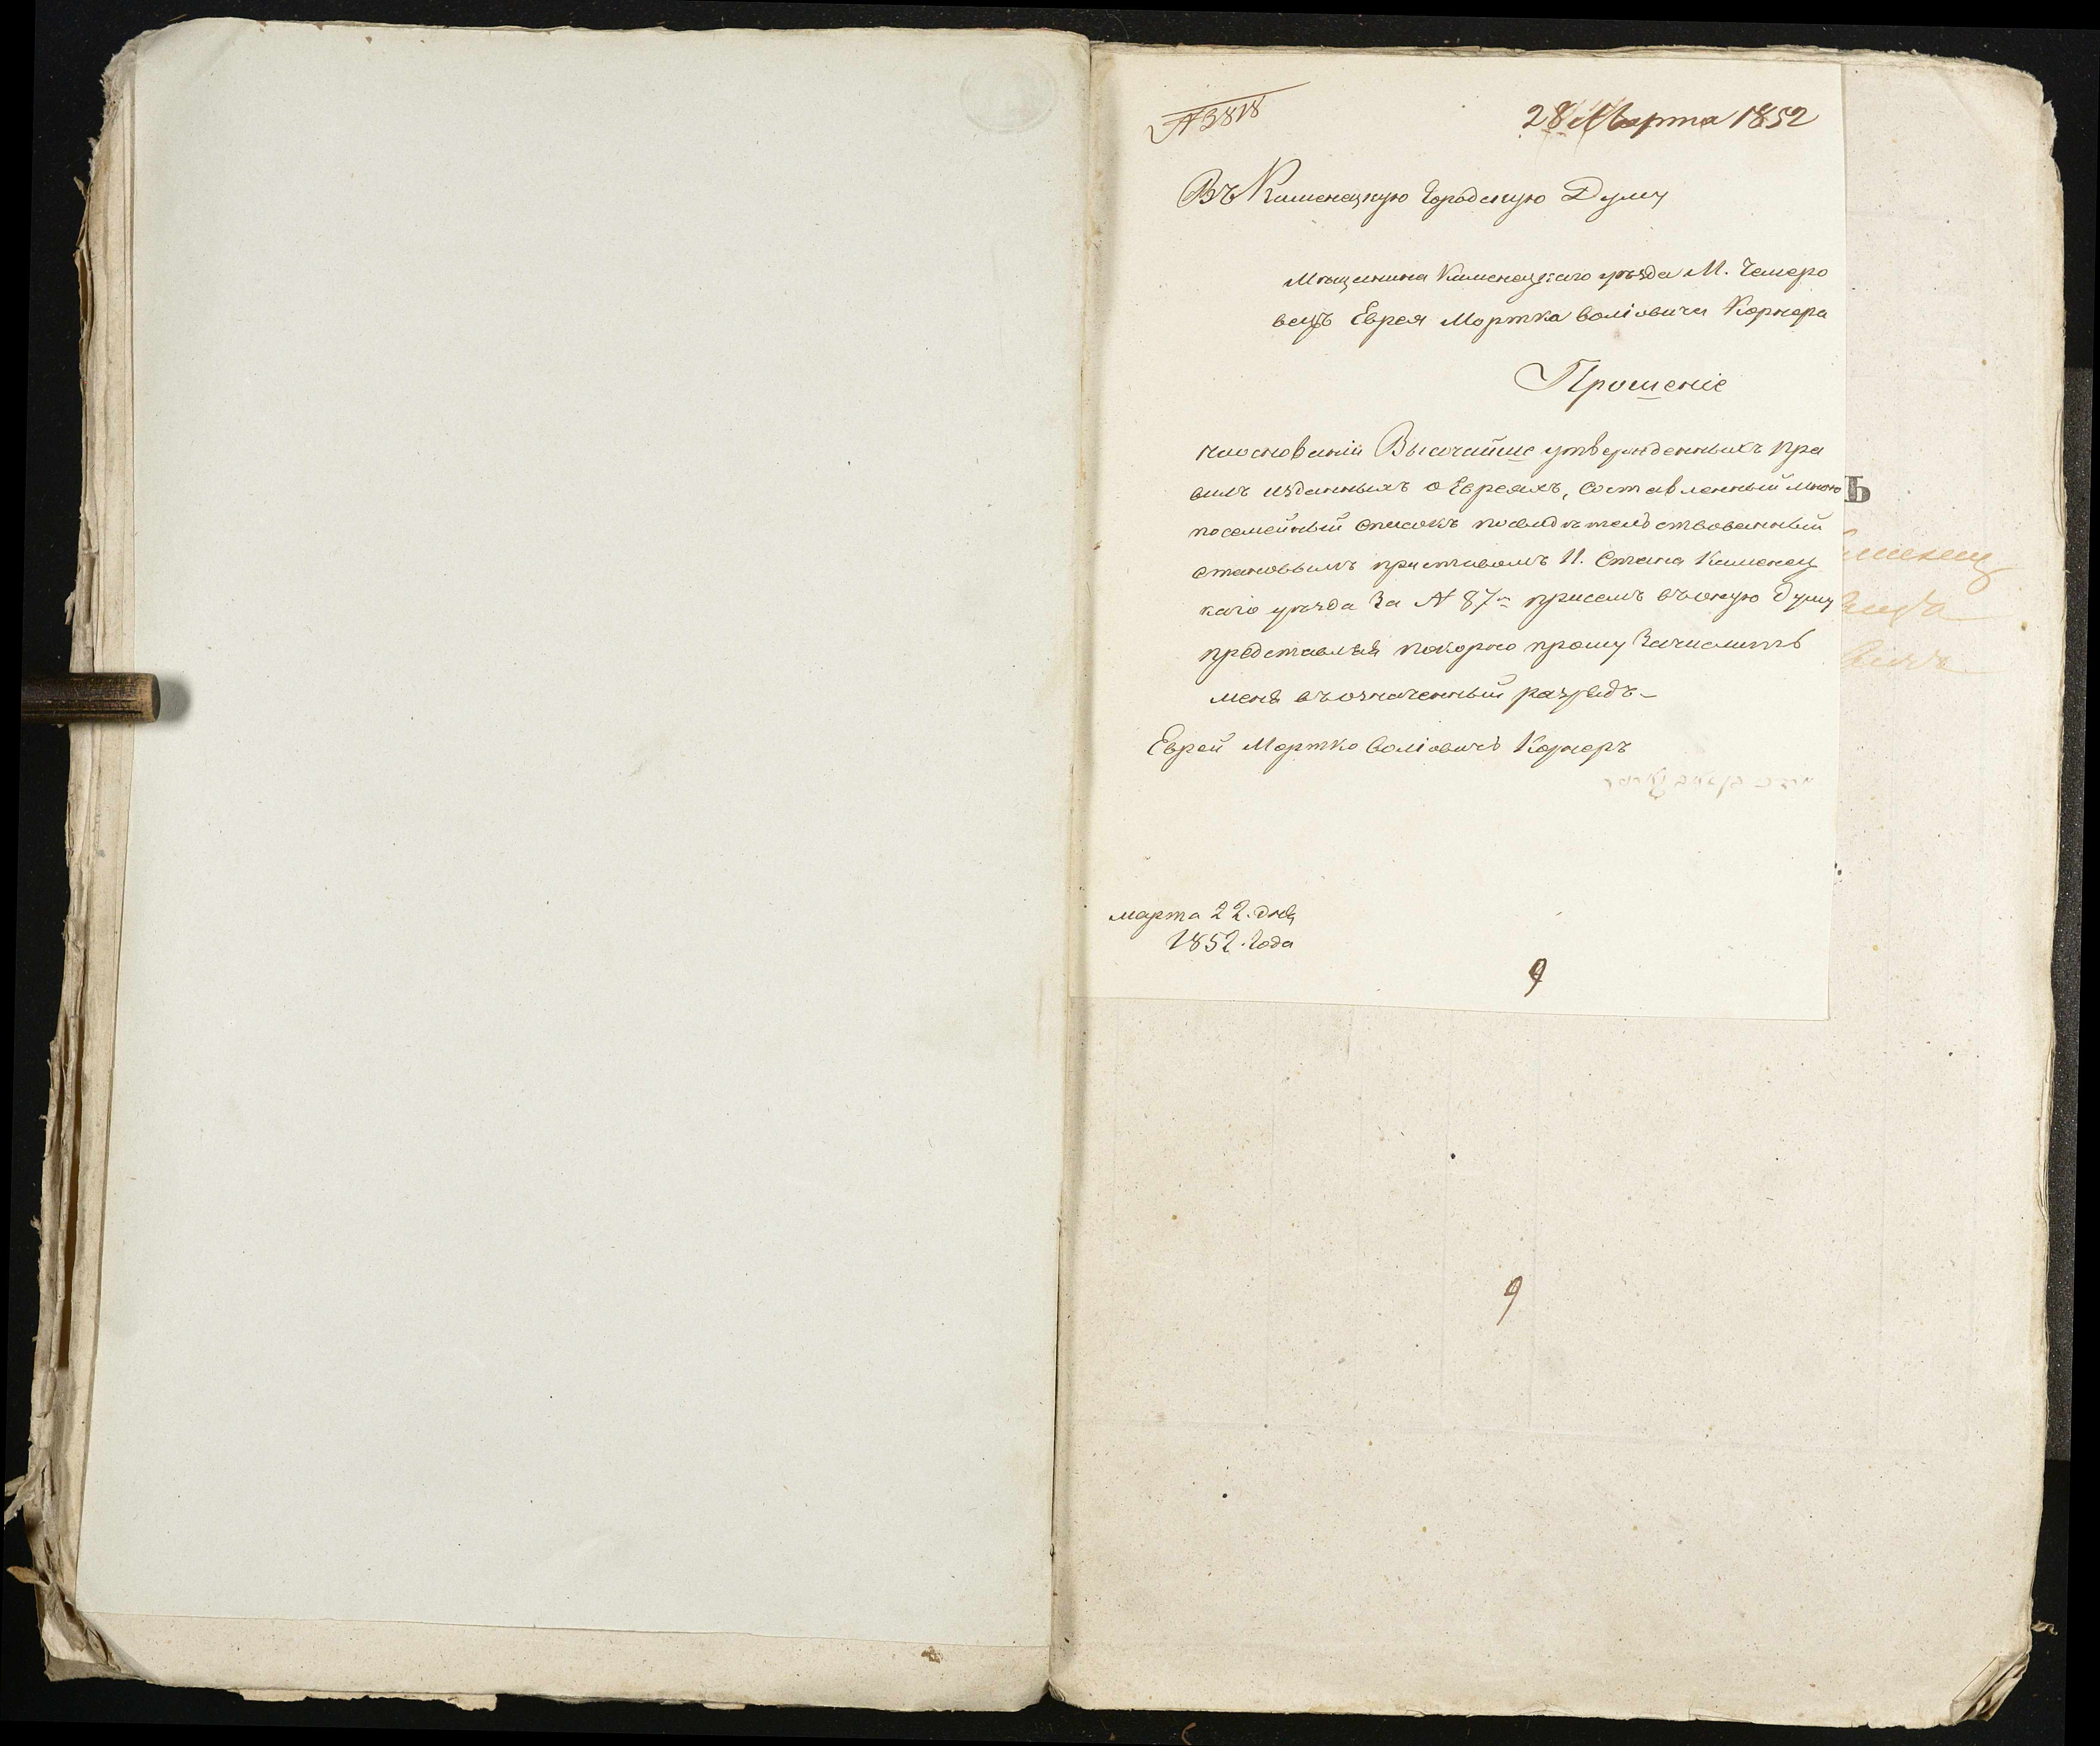 № 3818
28 Марта 1852
Въ Каменецкую Городскую Думу
Мѣщанина Каменецкаго уѣзда М. Чемеро
вецъ Еврея МорткаВоліовича Корнера
Прошеніе
наоснованіи Высочайше утвержденныхъ пра
вилъ изданныхъ о Евреяхъ, составленный мною
посемейный списокъ
становымъ приставомъ II. Стана Каменец
каго уѣзда За № 87м присемъ въоную Думу
представляя покорно прошу Зачислить
меня въозначенный разрядъ
Еврей Мортко Волiовичъ Корнеръ
марта 22. дня
1852. Года
9
9
Ъ